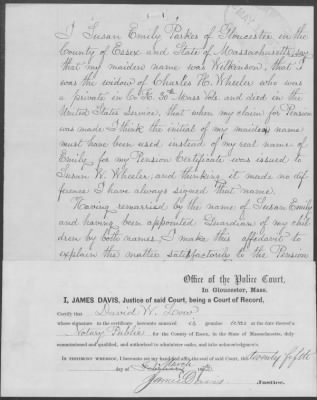 I Susan Emily Parker of Gloucester in the
County of Essex and State of Massachusetts, say
that my maiden name was Wilkinson, that I
was the widow of Charles H. Wheeler who was
a private in Co. K. 30th Mass Vols. and died in the
United States Service, that when my claim for Pension
was made I think the initial of my maiden name
must have been used instead of my real name of
Emily, for my Pension Certificate was issued to
Susan W. Wheeler and thinking it made no dif
ference I have always signed that name.
Having remarried by the name of Susan Emily
and having been appointed Guardian of my chil
dren by both names, I make this affidavit to
explain the matter satisfactorily to the Pension
Office of the Police Court,
In Gloucester, Mass.
I, JAMES DAVIS, Justice of said Court, being a Court of Record,
Certify that David W. Low
whose signature to the certificate hereunto annexed is genuine was at the date thereof a
Notary Public for the County of Essex, in the State of Massachusetts, duly
commissioned and qualified, and authorized to administer oaths, and take acknowledgments.
IN TESTIMONY WHEREOF, I hereunto set my hand and affix the seal of said Court, this twenty fifth
day of March
James Davis Justice.